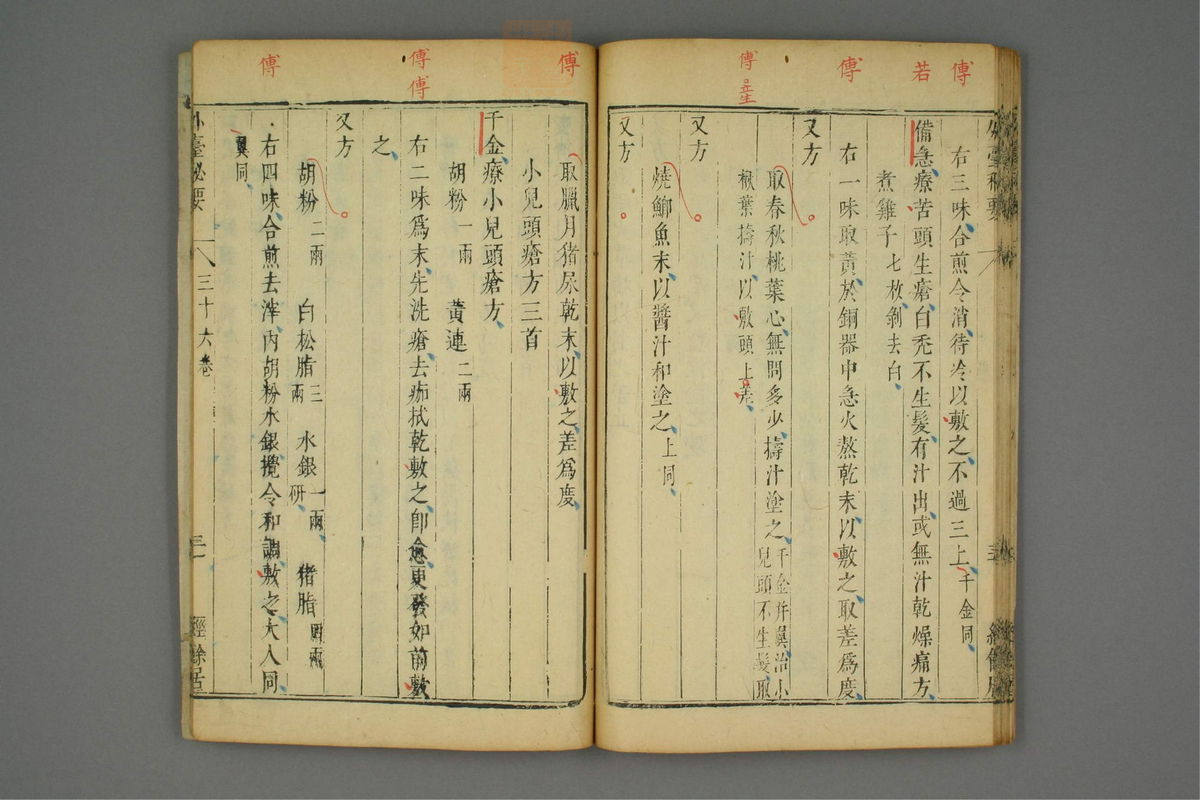 傅
若
傅
傅
產
右三味合煎令消待冷以敷之不過三上千金同
備急療苦頭生瘡白禿不生髮有汁出或無汁乾燥痛方
煮雞子七枚剝去白
右一味取黃於銅器中急火熬乾末以敷之取差爲度
又方
取春秋桃葉心無問多少擣汁塗之千金并翼治小兒頭不生髮取
楸葉擣汁以敷頭上
又方
燒鯽魚末以醬汁和塗之上同
又方
傅
傅
傅
傅
取臘月猪屎乾末以敷之差爲度
小兒頭瘡方三首
千金療小兒頭瘡方
胡粉一兩 黃連二兩
右二味爲末先洗瘡去痂拭乾敷之卽愈更發如前敷
之
又方
胡粉二兩 白松脂三兩 水銀一兩研 猪脂四兩
右四味合煎去滓內胡粉水銀攪令和調敷之大人同
翼同
外臺秘要 三十六卷 三一 經餘居